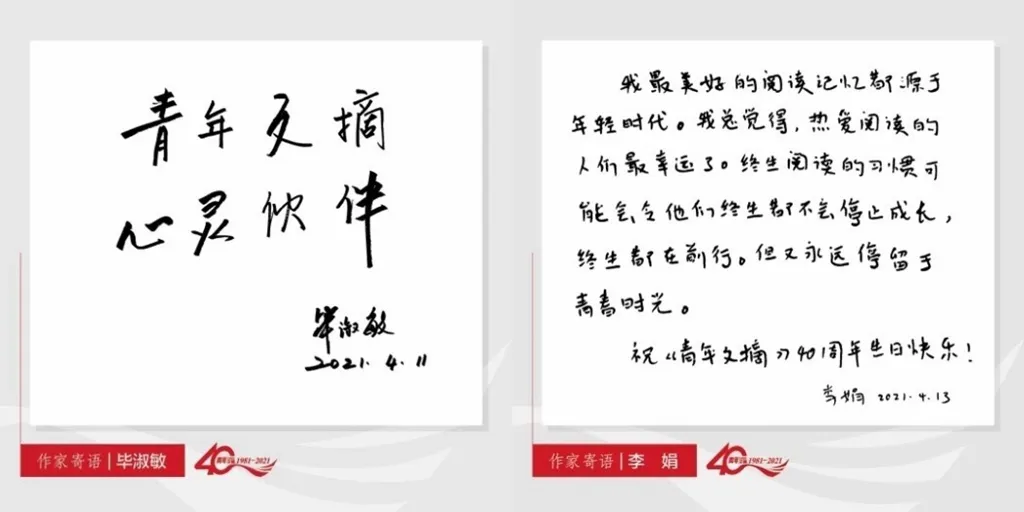 青年文摘
心灵伙伴
毕淑敏
2021.4.11
作家寄语|毕淑敏
40
青年文摘 1981-2021
我最美好的阅读记忆都源于
年轻时代。我总觉得,热爱阅读的
人们最幸运了。终生阅读的习惯可
能会令他们终生都不会停止成长,
终生都在前行。但又永远停留于
青春时光。
祝《青年文摘》40周年生日快乐!
李娟 2021.4.13
作家寄语|李 娟
40
青年文摘 1981-2021